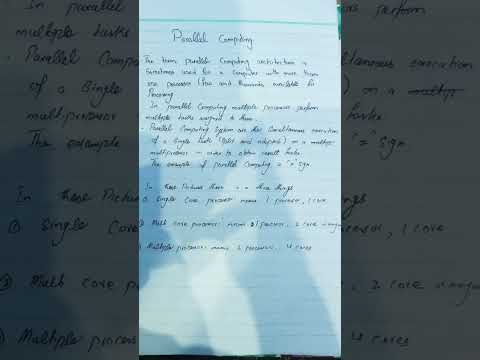 Parallel Computing
The term parallel Computing architecture is
Sometimes used for a computer with more than
one processor (few and thousands available for
Processing
In parallel Computing multiple processors perform
multiple tasks assigned to them.
Parallel Computing System are the Simultaneous execution
of a Single task (Split and adapted) on a multiple
multiprocessor in order to obtain result faster
The example of parallel Computing "=" Sign.
In these Pictures there three things
① Single Core processor means 1 processor, 1 core
② Multi core processor means 1 processor, 2 core
Multiple processor means 2 processor, 4 cores